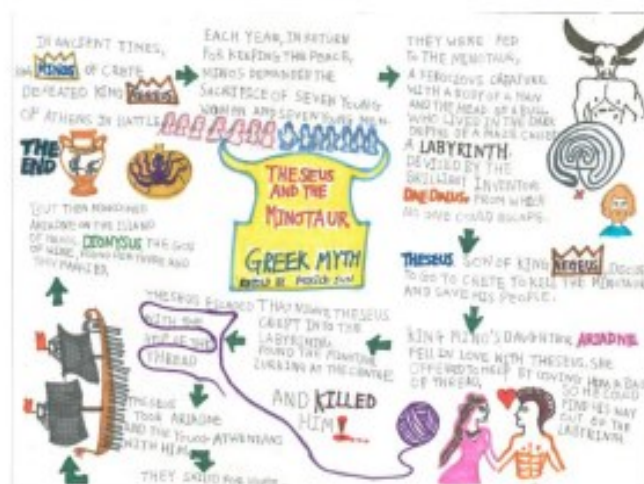 IN ANCIENT TIMES,
KING MINOS OF CRETE
DEFEATED KING AEGEUS
OF ATHENS IN BATTLE
EACH YEAR, IN RETURN
FOR KEEPING THE PEACE,
MINOS DEMANDED THE
SACRIFICE OF SEVEN YOUNG
WOMEN AND SEVEN YOUNG MEN.
THEY WERE FED
TO THE MINOTAUR,
A FEROCIOUS CREATURE
WITH A BODY OF A MAN
AND THE HEAD OF A BULL
WHO LIVED IN THE DARK
DEPTHS OF A MAZE CALLED
A LABYRINTH.
DEVISED BY THE
BRILLIANT INVENTOR
DAEDALUS, FROM WHICH
NO ONE COULD ESCAPE.
THESEUS AND THE MINOTAUR
GREEK MYTH
RETOLD BY
THESEUS SON OF KING AEGEUS,
TO GO TO CRETE TO KILL THE MINOTAUR
AND SAVE HIS PEOPLE.
KING MINO'S DAUGHTER, ARIADNE
FELL IN LOVE WITH THESEUS. SHE
OFFERED TO HELP BY GIVING HIM A
OF THREAD,
SO HE COULD
FIND HIS WAY
OUT OF THE
LABYRINTH.
THAT NIGHT, THESEUS
CREPT INTO THE
LABYRINTH,
FOUND THE MINOTAUR
LURKING AT THE CENTRE
AND KILLED
HIM!
THESEUS ESCAPED
WITH THE
HELP OF THE
THREAD
THESEUS
TOOK ARIADNE
AND THE YOUNG ATHENIANS
WITH HIM
THEY SAILED FOR
BUT THEN ABANDONED
ARIADNE ON THE ISLAND
OF NAXOS. DIONYSUS THE GOD
OF WINE, FOUND HER THERE AND
THEY MARRIED.
THE
END